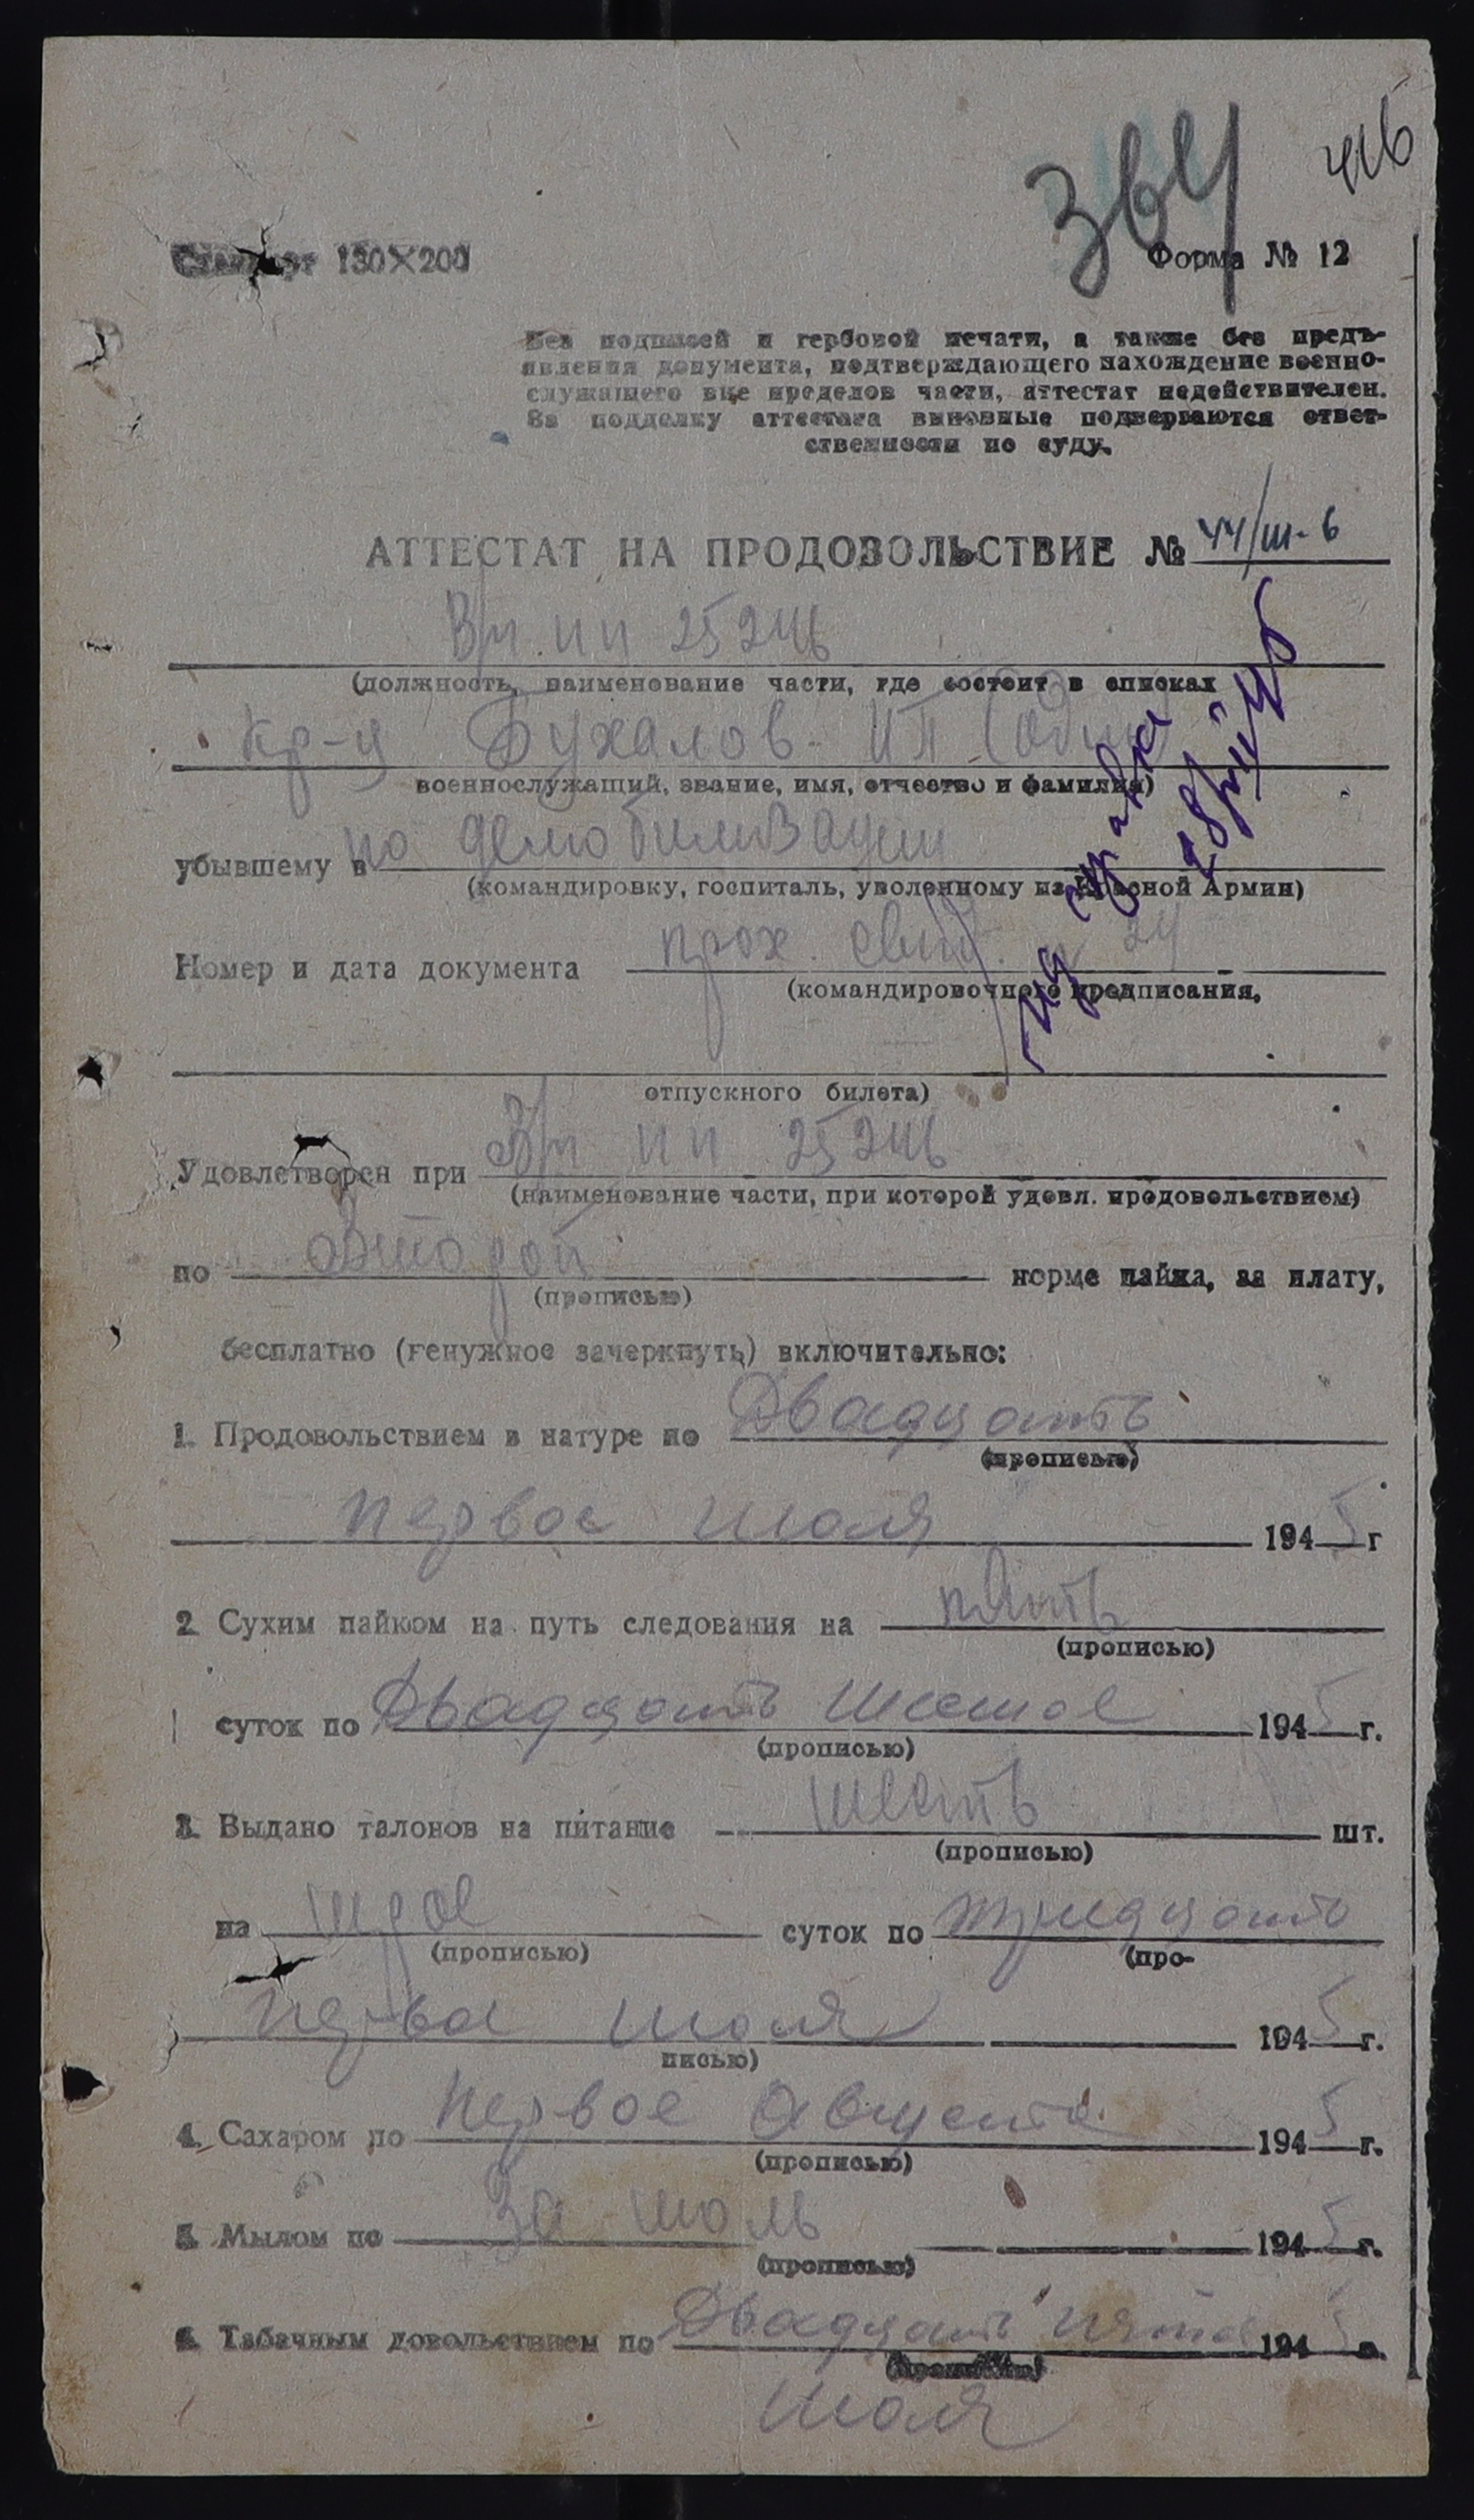 364
416
Стандарт 130×200
Форма № 12
Без подписей и гербовой печати, а также без предъ-
явления документа, подтверждающего нахождение военно-
служащего вне пределов части, аттестат недействителен.
За подделку аттестата виновные подвергаются ответ-
ственности по суду.
АТТЕСТАТ НА ПРОДОВОЛЬСТВИЕ № 44/III-6
В/ч. пп 25246
(должность, наименование части, где состоит в списках
кр-ц Духалов ИП (один)
военнослужащий, звание, имя, отчество и фамилия)
убывшему в по демобилизации
(командировку, госпиталь, уволенному из Красной Армии)
Номер и дата документа прох. свид.
(командировочного предписания,
отпускного билета)
Удовлетворен при В/ч пп 25246
(наименование части, при которой удовл. продовольствием)
по второй норме пайка, за плату,
(прописью)
бесплатно (ненужное зачеркнуть) включительно:
1. Продовольствием в натуре по Двадцать
(прописью)
первое июля 1945 г
2. Сухим пайком на путь следования на пять
(прописью)
суток по Двадцать шестое 1945 г.
(прописью)
3. Выдано талонов на питание шесть шт.
(прописью)
на суток по тридцать
(прописью) (про-
первое июля 1945 г.
писью)
4. Сахаром по Первое Августа 1945 г.
(прописью)
5. Мылом по За июль 1945 г.
(прописью)
6. Табачным довольствием по Двадцать пятое 1945 г.
(прописью)
июля